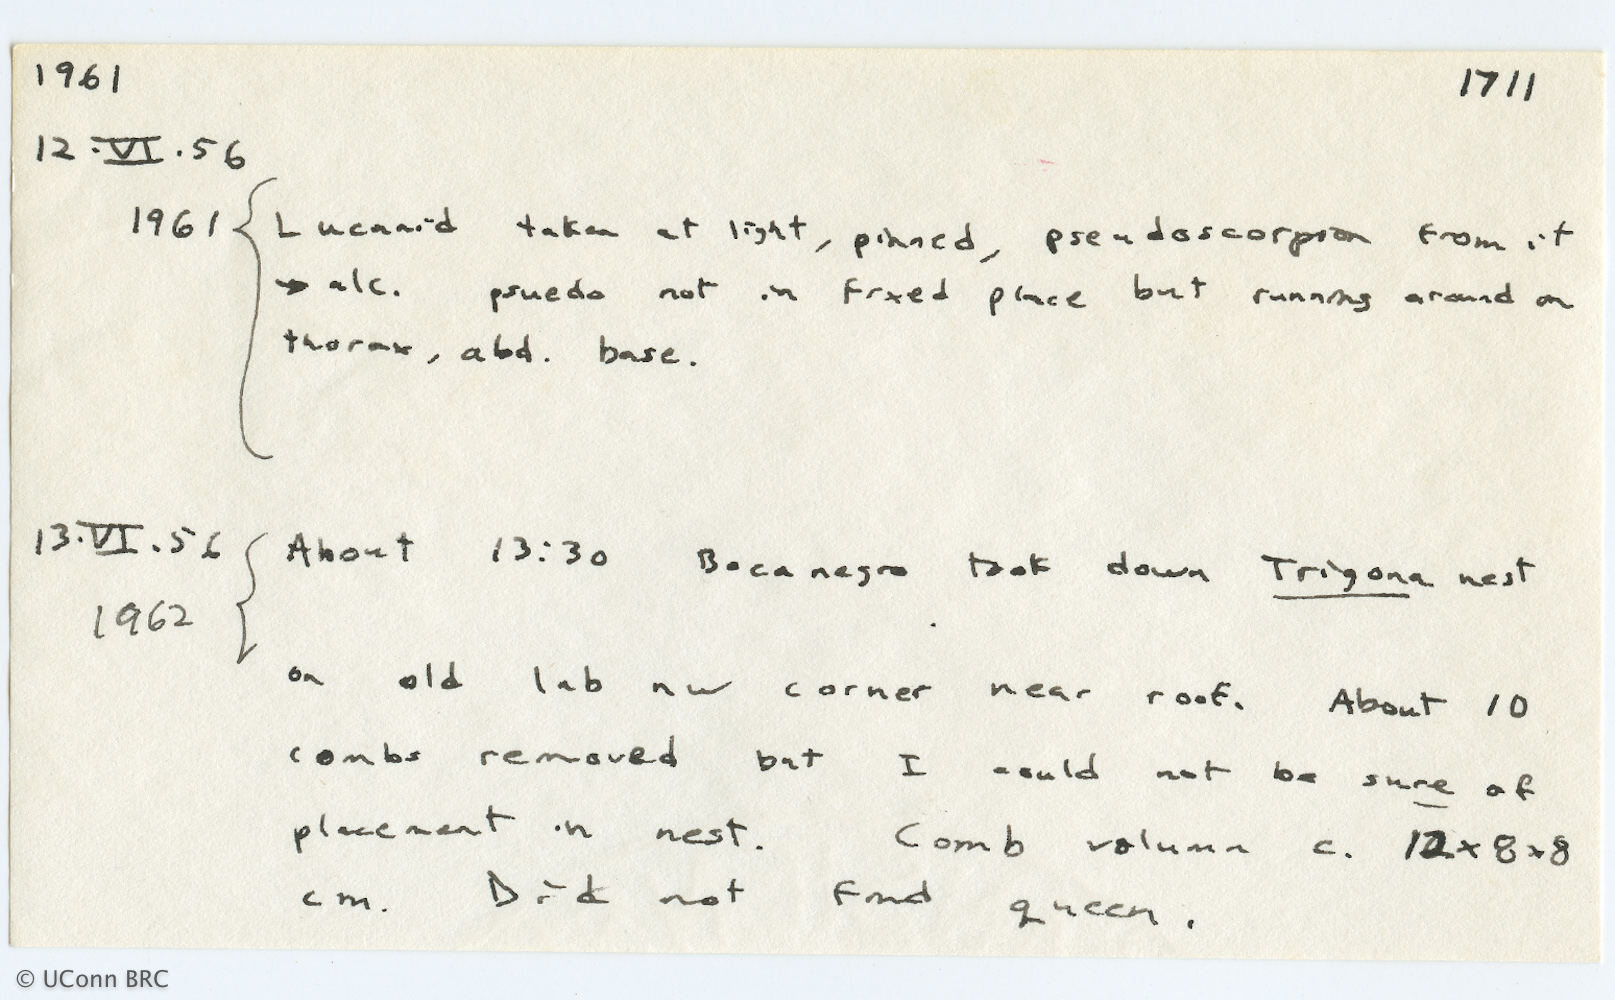 1961 1711
12.VI.56
1961 { Lucanid taken at light, pinned, pseudoscorpion from it
→ alc. psuedo not in fixed place but running around on
thorax, abd. base.
13.VI.56 { About 13:30 Bocanegro took down Trigona nest
1962
on old lab nw corner near roof. About 10
combs removed but I could not be sure of
placement in nest. Comb volumn c. 12x8x8
cm. Did not find queen.
© UConn BRC